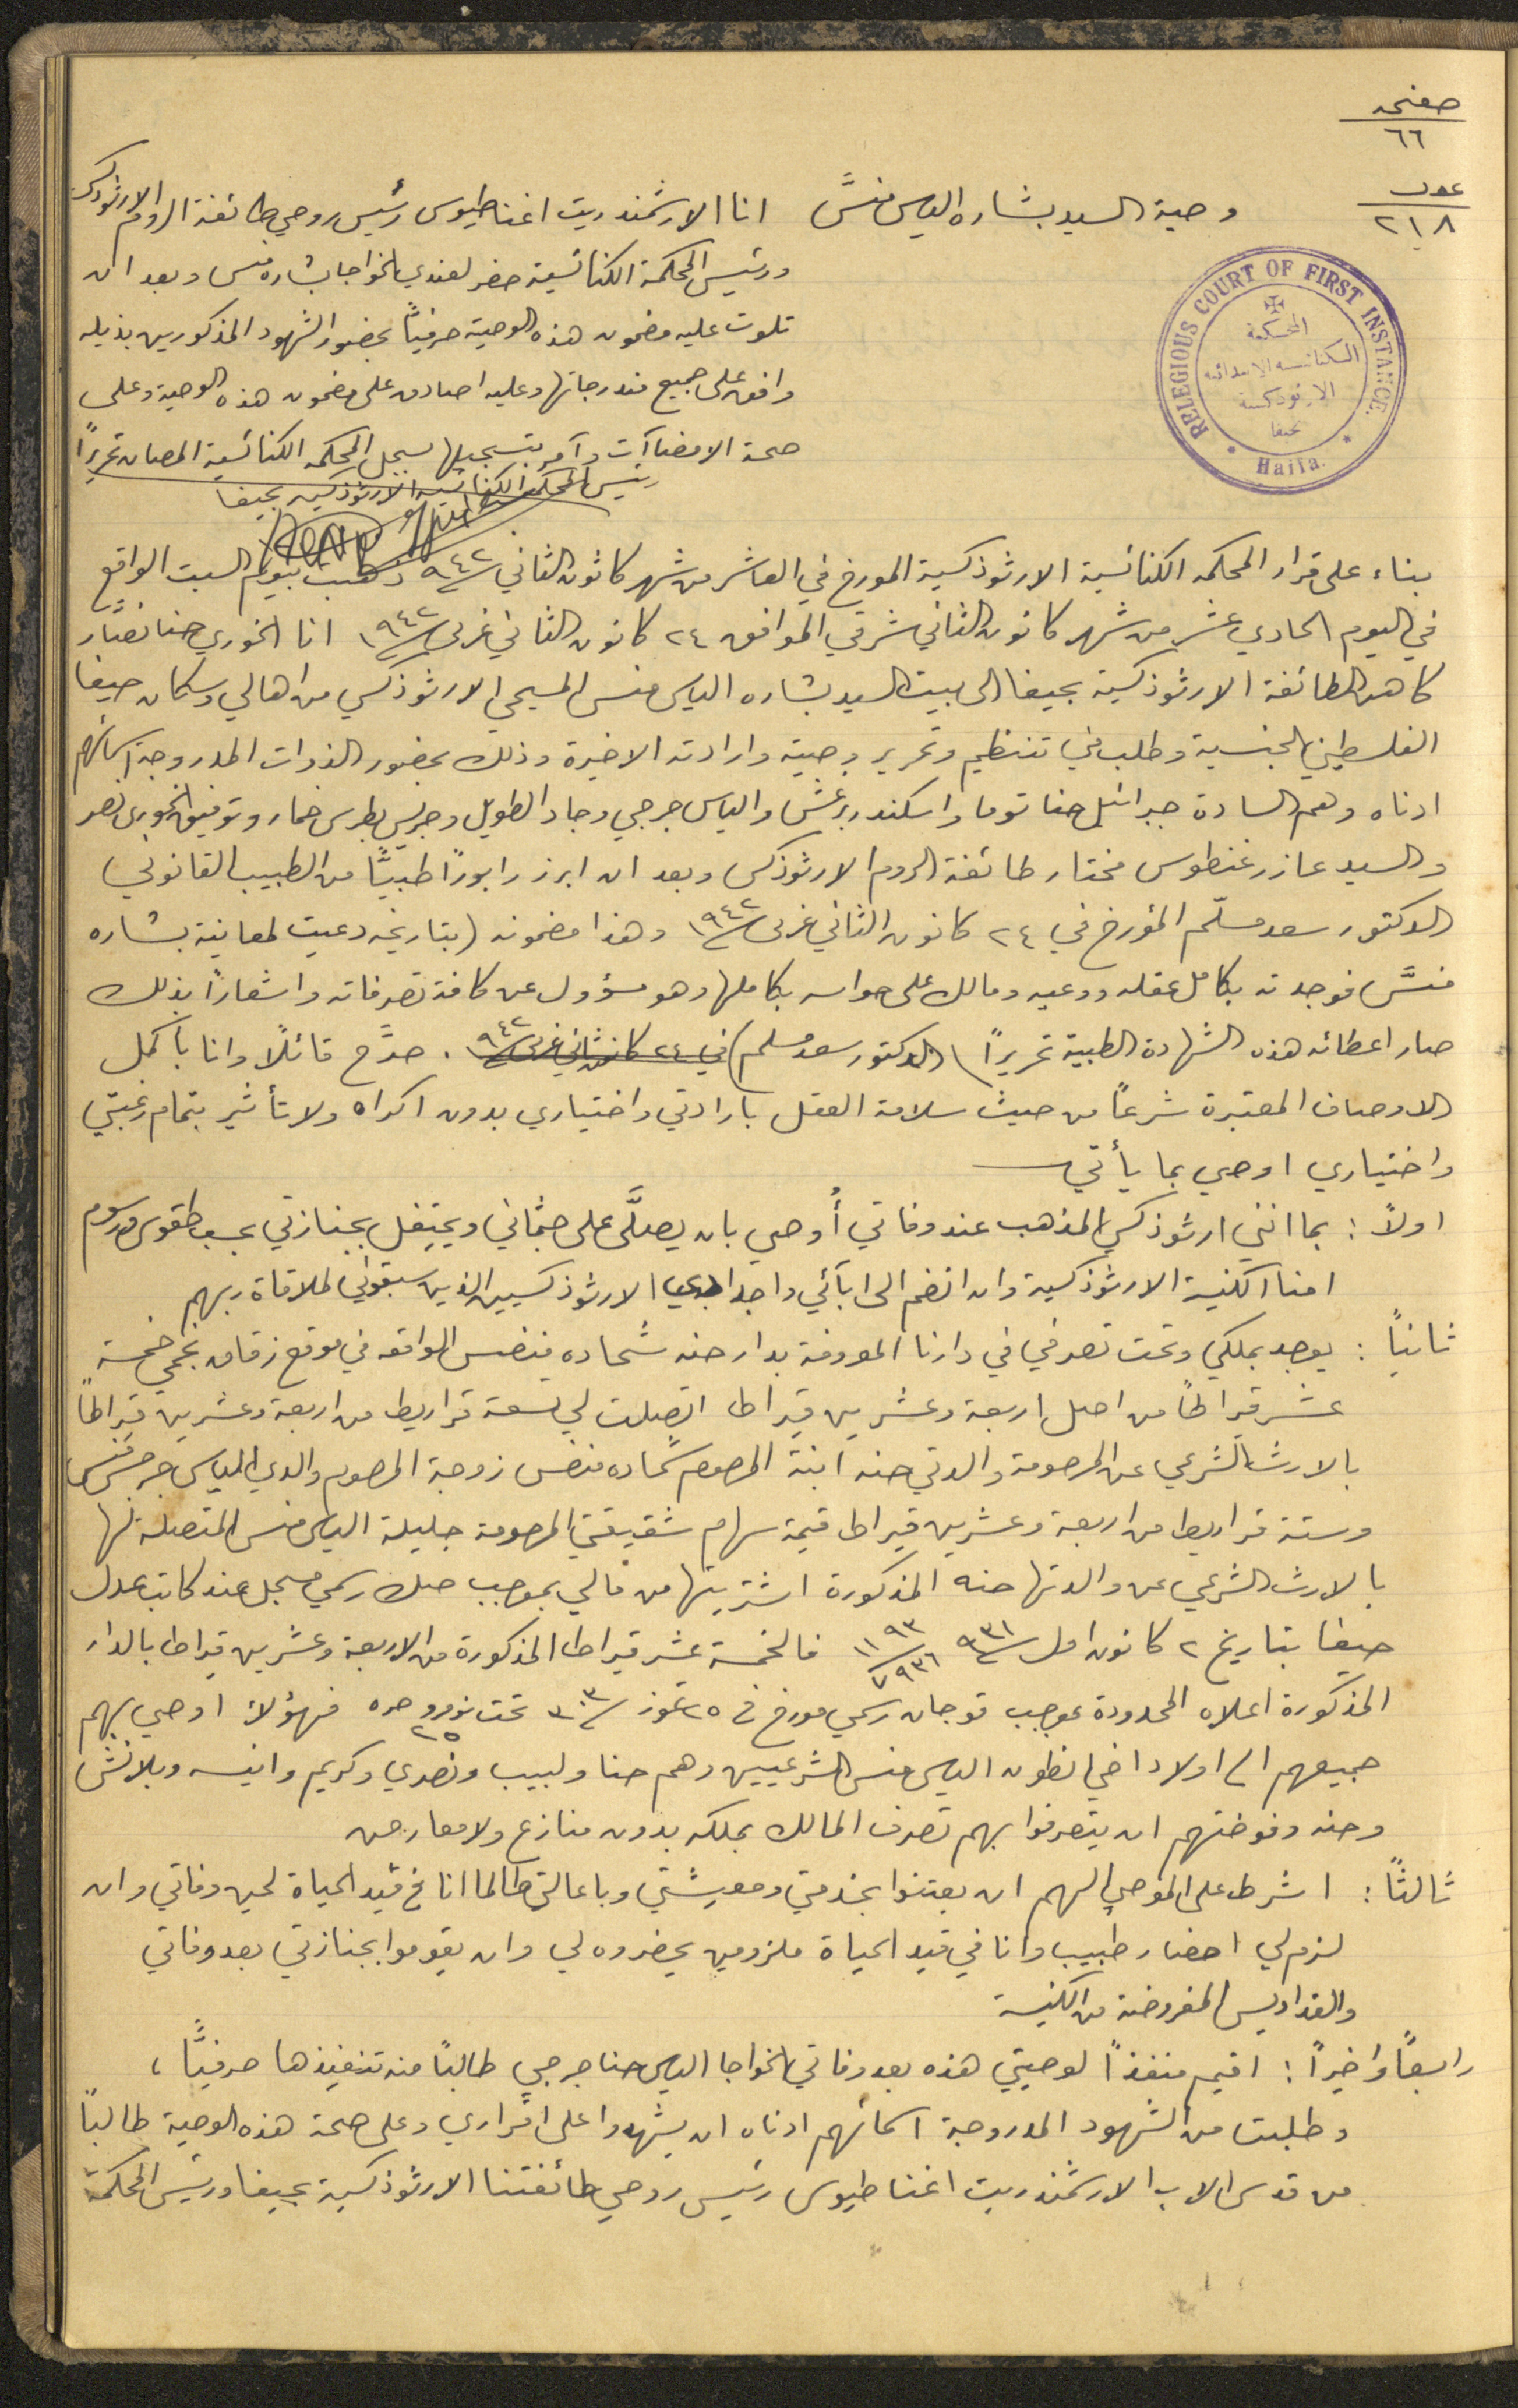 صفحه
٦٦
عدد
٢١٨
وصية السيد بشاره الياس منسَّى انا الارشمندريت اغناطيوس رئيس روحي طائفة الروم الارثوذكس
ورئيس المحكمة الكنائسية حضر لعندي الخواجا بشاره منسى وبعد ان
تلوت عليه مضمون هذه الوصية حرفياً بحضور الشهود المذكورين بذيله
وافق على جميع مندرجاتها وعليه اصادق على مضمون هذه الوصية وعلى
صحة الامضاآت وآمر بتسجيلها بسجل المحكمه الكنائسية المصان تحريراً
رئيس المحكمة الكنائسية الارثوذكسية بحيفا
RELEGIOUS COURT OF FIRST INSTANCE
المحكمة
الكنائسية الابتدائية
الارثوذكسية
بحيفا
Haifa.
بناء على قرار المحكمه الكنائسية الارثوذكسية المورخ في العاشر من شهر كانون الثاني ٩٤٢ ذهبت بيوم السبت الواقع
في اليوم الحادي عشر من شهر كانون الثاني شرقي الموافق ٢٤ كانون الثاني غربي ١٩٤٢ انا الخوري حنا نصَّار
كاهن الطائفة الارثوذكسية بحيفا الى بيت السيد بشاره الياس منسى المسيحي الارثوذكسي من اهالي وسكان حيفا
الفلسطيني الجنسية وطلب مني تنظيم وتحرير وصيته وارادته الاخيرة وذلك بحضور الذوات المدروجة اسمائهم
ادناه وهم السادة جبرائيل حنا توما واسكندر برغش والياس جرجي وجاد الطويل وجريس بطرس خمار وتوفيق الخوري نصر
والسيد عازر غنطوس مختار طائفة الروم الارثوذكس وبعد ان ابرز رابوراً طبيَّاً من الطبيب القانوني
الدكتور سعد مسلّم المؤرخ في ٢٤ كانون الثاني غربي ١٩٤٢ وهذا مضمونه (بتاريخه دعيت لمعاينة بشاره
منسَّى فوجدته بكامل عقله ووعيه ومالك على حواسه بكاملها وهو مسؤول عن كافة تصرفاته واشعاراً بذلك
صار اعطائه هذه الشهادة الطبية تحريراً (الدكتور سعد مسلم) في ٢٤ كانون ثاني غربي ٩٤٢. صرَّح قائلاً وانا باكمل
الاوصاف المعتبرة شرعاً من حيث سلامة العقل بارادتي واختياري بدون اكراه ولا تأثير بتمام رغبتي
واختياري اوصي بما يأتي
اولاً : بما انني ارثوذكسي المذهب عند وفاتي أُوصي بان يصلَّى على جثماني ويحتفل بجنازتي بحسب طقوس ورسوم
امنا الكنيسة الارثوذكسية وان انضم الى ابآئي واجدادي الارثوذكسيين الذين سبقوني لملاقاة ربهم
ثانياً : يوجد بملكي وتحت تصرفي في دارنا المعروفة بدار حنه شحاده منضس الواقعه في موقع زقاق نجمي خمسة
عشر قيراطاً من اصل اربعة وعشرين قيراط اتصلت لي تسعة قراريط من اربعة وعشرين قيراطاً
بالارث الشرعي عن المرحومة والدتي حنه ابنة المرحوم شحاده منضس زوجة المرحوم والدي الياس جرجس منسى
وستة قراريط من اربعة وعشرين قيراط قيمة سهام شقيقتي المرحومة جليلة الياس منسى المتصلة لها
بالارث الشرعي عن والدتها حنه المذكورة اشتريتها من مالي بموجب صك رسمي مسجل عند كاتب عدل
حيفا بتاريخ ٢ كانون اول ٩٣١ فالخمسة عشر قيراط المذكورة من الاربعة وعشرين قيراط بالدار
المذكورة اعلاه المحدودة بموجب قوجان رسمي مورخ في ٢٥ تموز تحت نومرو ٢٥ فهؤلاء اوصي بهم
جميعهم الى اولاد اخي انطون الياس منسى الشرعيين وهم حنا ولبيب ونصري وكريم وانيسه وبلانش
وحنه وفوضتهم ان يتصرفوا بهم تصرف المالك بملكه بدون منازع ولا معارض
ثالثاً : اشرط على الموصي اليهم ان يعتنوا بخدمتي ومعيشتي وباعالتي طالما انا في قيد الحياة لحين وفاتي وان
لزم لي احضار طبيب وانا في قيد الحياة ملزومين يحضروه لي وان يقوموا بجنازتي بعد وفاتي
والقداديس المفروضة من الكنيسة
رابعاً واخيراً : اقيم منفذاً لوصيتي هذه بعد وفاتي الخواجا الياس حنا جرجي طالباً منه تنفيذها حرفيَّاً،
وطلبت من الشهود المدروجة اسمائهم ادناه ان يشهدوا على اقراري وعلى صحة هذه الوصية طالباً
من قدس الاب الارشمندريت اغناطيوس رئيس روحي طائفتنا الارثوذكسية بحيفا ورئيس المحكمة